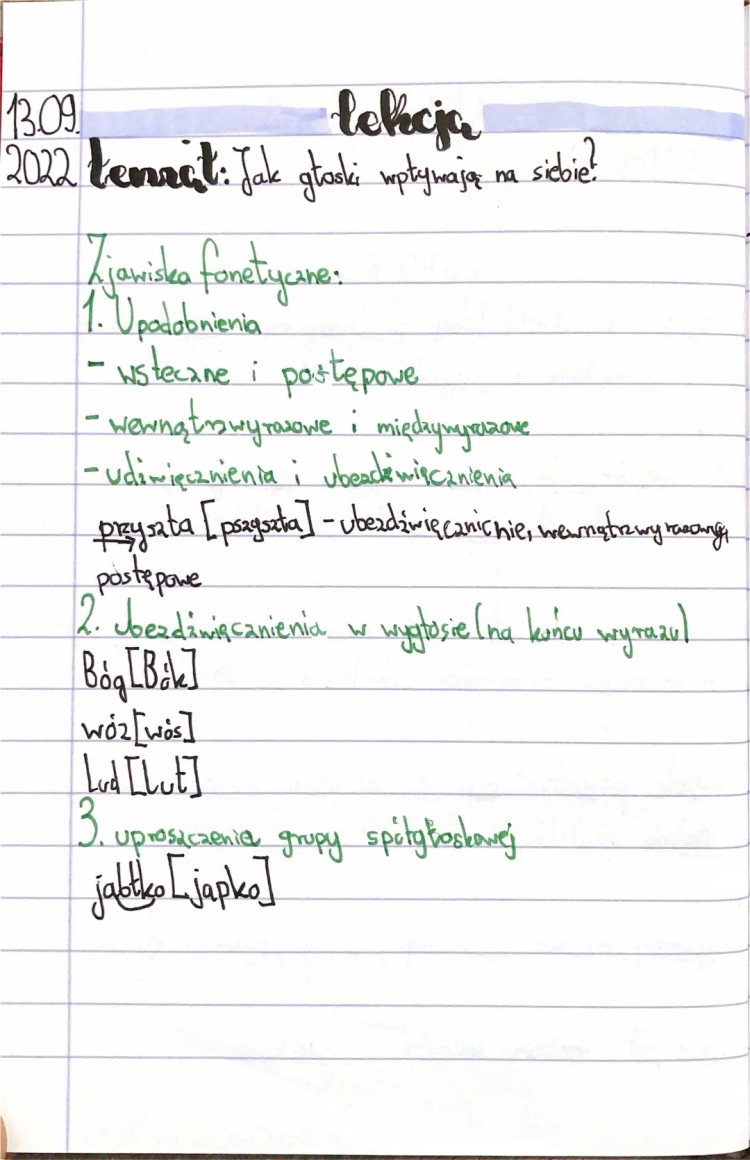 13.09. lekcja
2022 temat: Jak głoski wpływają na siebie?
Zjawiska fonetyczne:
1. Upodobnienia
- wsteczne i postępowe
- wewnątrzwyrazowe i międzywyrazowe
- udźwięcznienia i ubezdźwięcznienia
przyszła [pszyszła] - ubezdźwięcznienie, wewnątrzwyrazowe,
postępowe
2. ubezdźwięcznienia w wygłosie (na końcu wyrazu)
Bóg [Bók]
wóz [wós]
Lud [Lut]
3. uproszczenia grupy spółgłoskowej
jabłko [japko]